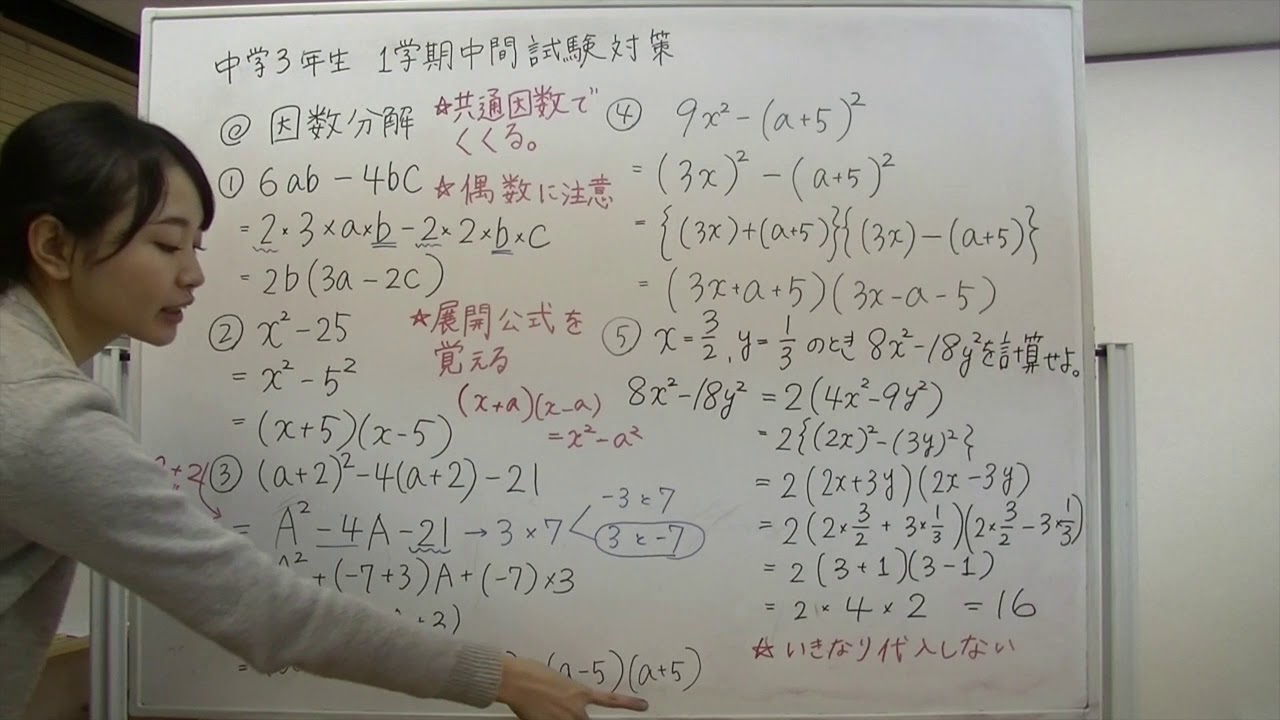 中学3年生 1学期中間試験対策
@ 因数分解
☆共通因数で
くくる。
① 6ab - 4bc
☆偶数に注意
= 2×3×a×b-2×2×b×c
= 2b(3a-2c)
② x²-25
☆展開公式を
覚える
= x²-5²
= (x+5)(x-5)
(x+a)(x-a)
=x²-a²
③ (a+2)²-4(a+2)-21
= A²-4A-21 → 3×7
-3と7
3と-7
A²+(-7+3)A+(-7)×3
+3)
=
(a-5)(a+5)
④ 9x²-(a+5)²
= (3x)²-(a+5)²
= {(3x)+(a+5)}{(3x)-(a+5)}
= (3x+a+5)(3x-a-5)
⑤ x=3/2, y=1/3 のとき 8x²-18y²を計算せよ。
8x²-18y² = 2(4x²-9y²)
= 2{(2x)²-(3y)²}
= 2(2x+3y)(2x-3y)
= 2(2×3/2 + 3×1/3)(2×3/2-3×1/3)
= 2(3+1)(3-1)
= 2×4×2 =16
☆いきなり代入しない